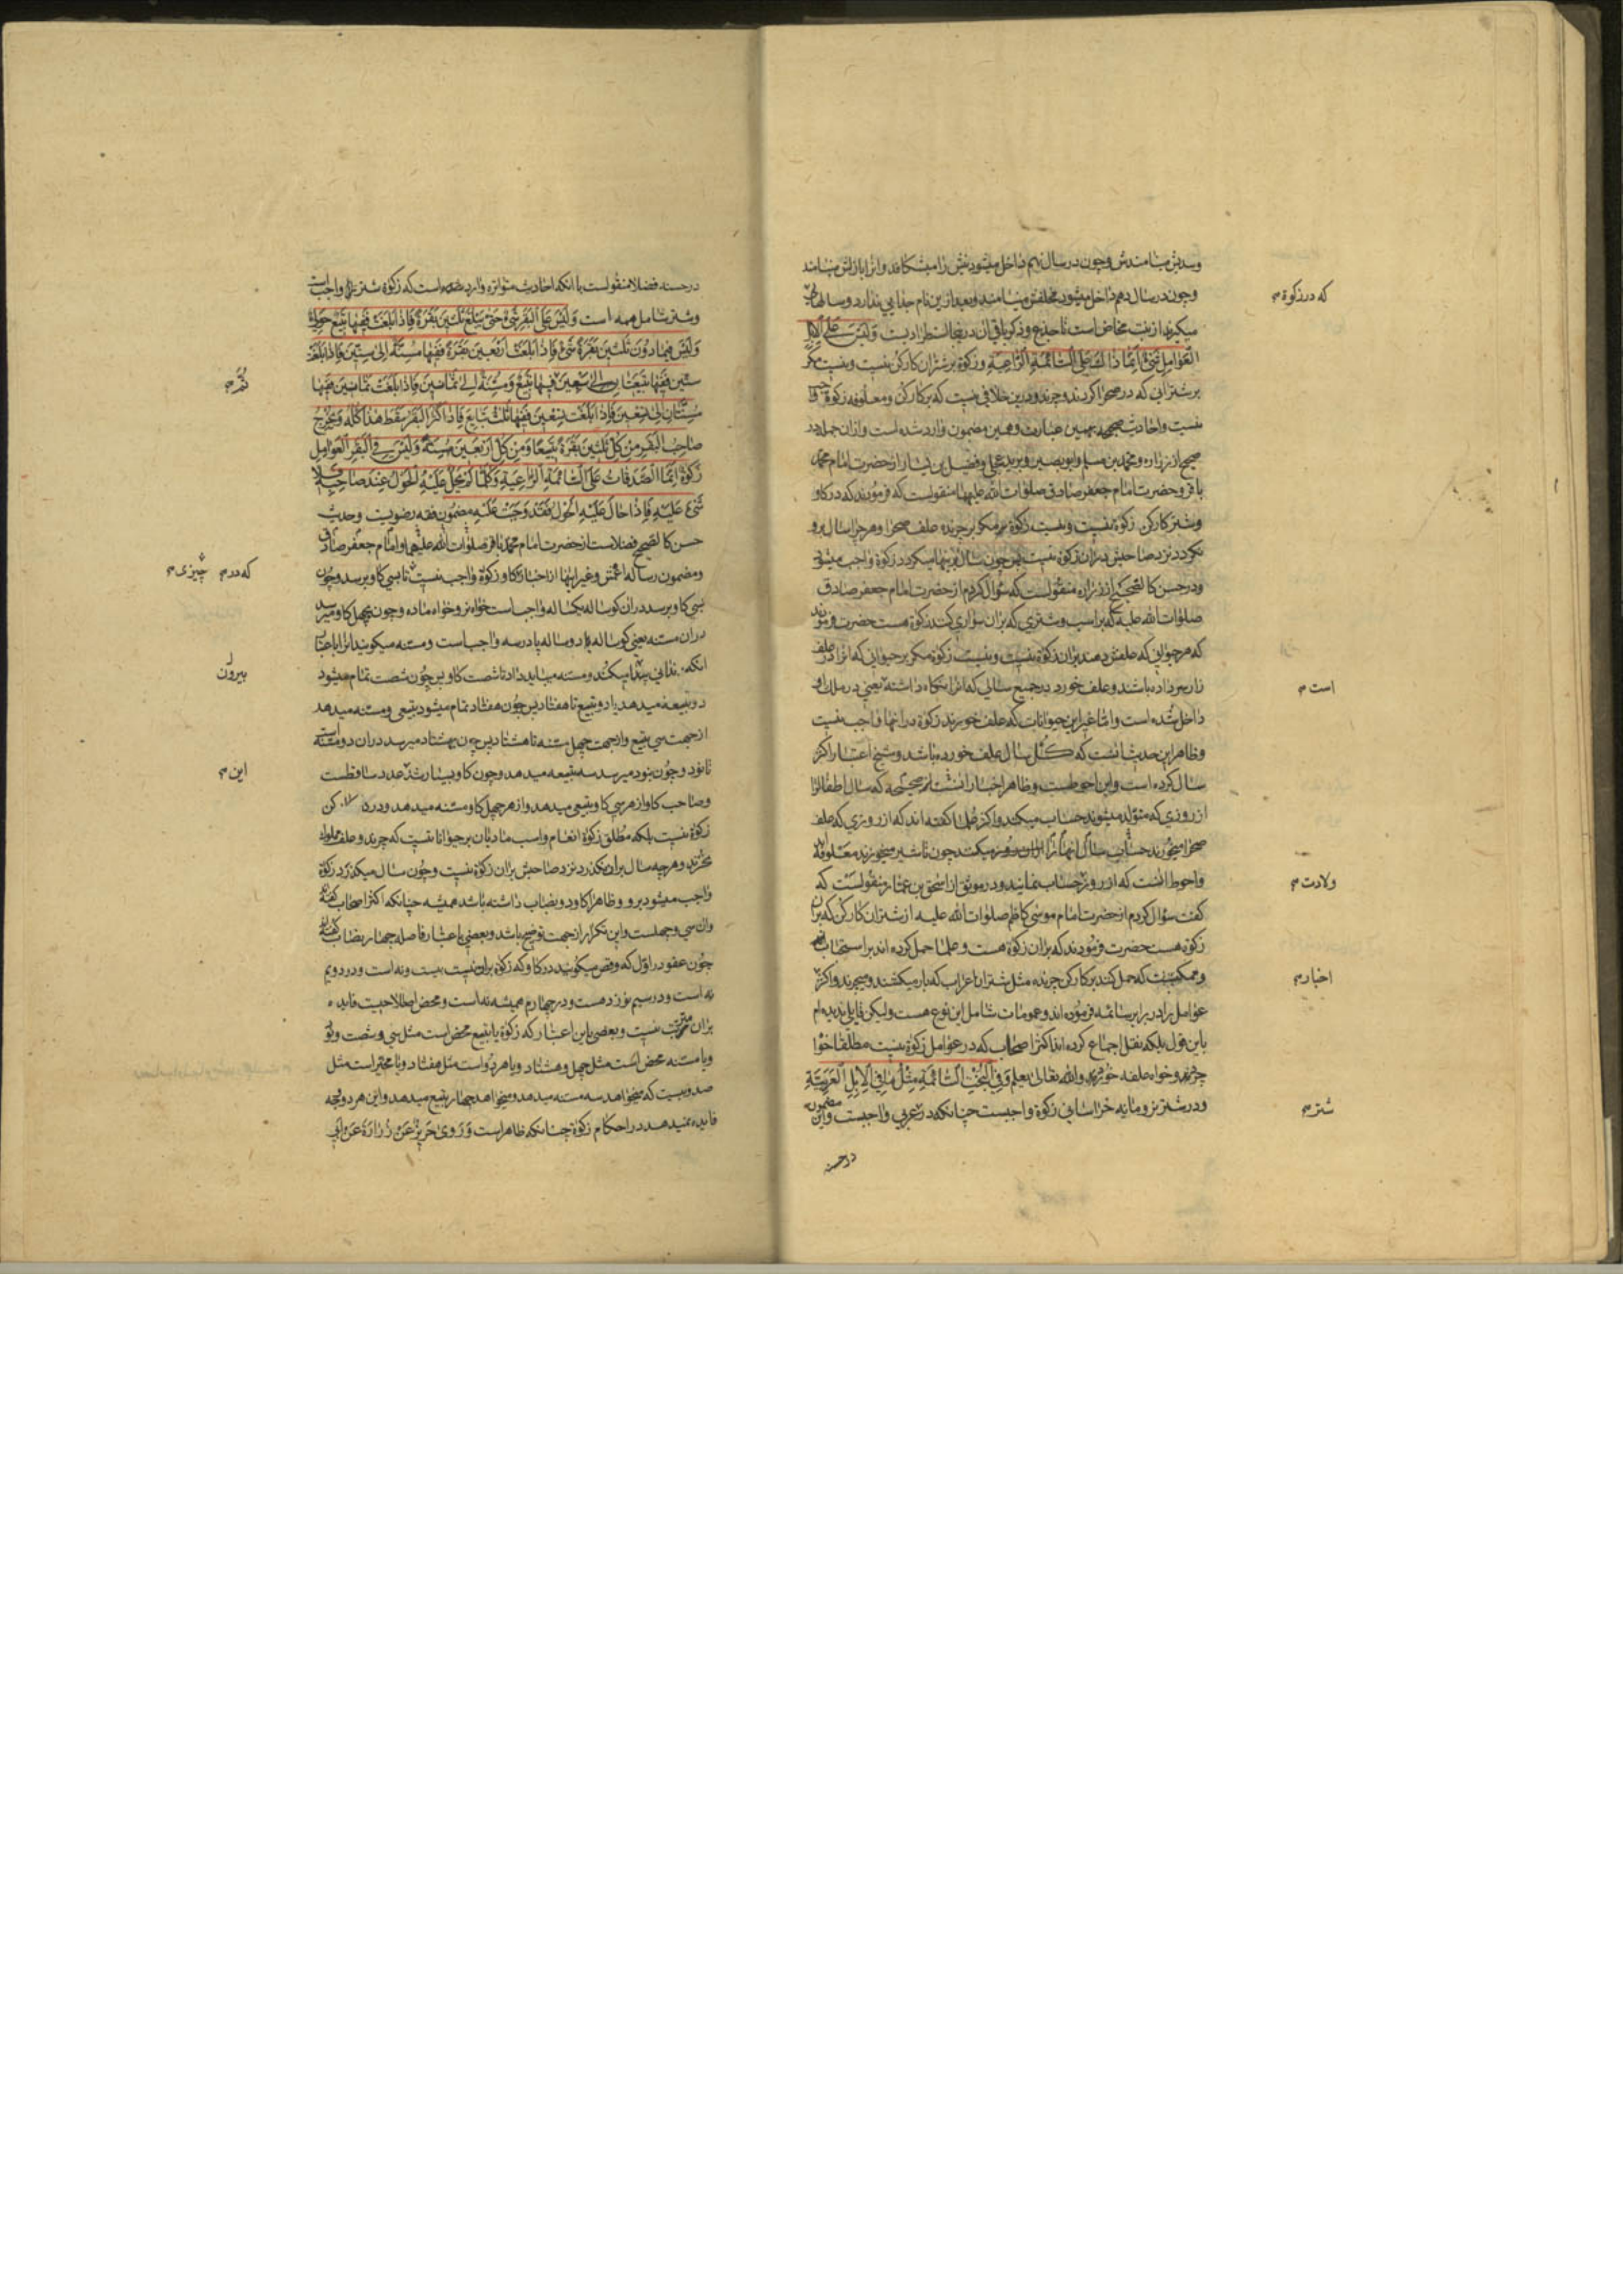 وسدیش مینامندش وچون در سال نهم داخل میشود نیش را میشکافد وانرا بازلش مینامند
وچون در سال دهم داخل میشود مخلفش مینامند وبعد ازین نام جدایی ندارد وسالهائی
که در زکوة
میگیرند از بنت مخاض است تا جذع وذکر باقی ان در ینجا استطرادیست وَلَیْسَ عَلَی الْاِبِلِ
الْعَوَامِلِ شَیْءٌ اِنَّمَا ذَالِكَ عَلَی السَّائِمَةِ الرَّاعِیَةِ وزکوة بر شتران کارکن نیست ونیست مگر
بر شترانی که در صحرا گردند وچرند ودرین خلافی نیست که بر کارکن ومعلوفه زکوة واجب
نیست واحادیث صحیحه بهمین عبارت وهمین مضمون وارد شده است وازان جمله در
صحیح از زراره ومحمد بن مسلم وابو بصیر وبرید عجلی وفضیل بن یسار از حضرت امام محمد
باقر وحضرت امام جعفر صادق صلوات الله علیهما منقولست که فرمودند که در کاو
وشتر کارکن زکوة نیست ونیست زکوة مکر بر چرنده علف صحرا وهر چرا سال برو
نکردد نزد صاحبش بران زکوة نیست پس چون سال بر اینها میکردد زکوة واجب میشود
ودر حسن کالصحیح از زراره منقولست که سؤال کردم از حضرت امام جعفر صادق
صلوات الله علیه که بر اسب وشتری که بران سواری کنند زکوة هست حضرت فرمودند
که هر حیوانی که علفش دهند بران زکوة نیست ونیست زکوة مکر بر حیوانی که انرا در علف
زار سر داده باشند وعلف خورد در جمیع سالی که انرا نکاه داشته یعنی در ملك او
است
داخل شده است واما غیر این حیوانات که علف خورند زکوة در انها واجب نیست
وظاهر این حدیث انست که کل سال علف خورده باشد وشیخ اعتبار اکثر
سال کرده است واین احوطست وظاهر اخبار انست که سال اطفال را
از روزی که متولد میشوند حساب میکنند واکثر علما گفته اند که از روزی که علف
صحرا میخورند حساب سال انها را میکنند چون تا شیر میخورند معلوفه
واحوط انست که از روز حساب نمایند ودر موثق از اسحق بن عمار منقولست که
ولادت
کفت سؤال کردم از حضرت امام موسی کاظم صلوات الله علیه از شتران کارکن که بران
زکوة هست حضرت فرمودند که بران زکوة هست وعلما حمل کرده اند بر استحباب
وممکنست که حمل کنند بر کارکن چرنده مثل شتران اعراب که بار میکشند ومیچرند واکثر
اخبار
عوامل را در برابر سائمه فرموده اند وعمومات شامل این نوع هست ولیکن قایلی ندیده ام
باین قول بلکه نقل اجماع کرده اند اکثر اصحاب که در عوامل زکوة نیست مطلقا خواه
چرند وخواه علف خورند والله تعالی یعلم وَفِی الْبُخْتِ السَّائِمَةِ مِثْلُ مَا فِی الْاِبِلِ الْعَرَبِیَّةِ
ودر شتر نر ومایه خراسانی زکوة واجبست چنانکه در عربی واجبست واین مضمون
شتر
در حسنه
در حسنه فضلا منقولست با انکه احادیث متواتره وارد است که زکوة شتر واجب است
وشتر شامل همه است وَلَیْسَ عَلَی الْبَقَرِ شَیْءٌ حَتّی یَبْلُغَ ثَلٰثِینَ بَقَرَةً فَاِذَا بَلَغَتْ فَفِیهَا تَبِیعٌ حَوْلِیٌّ
وَلَیْسَ فِیمَا دُونَ ثَلٰثِینَ بَقَرَةً شَیْءٌ فَاِذَا بَلَغَتْ اَرْبَعِینَ بَقَرَةً فَفِیهَا مُسِنَّةٌ اِلی سِتِّینَ فَاِذَا بَلَغَتْ
سِتِّینَ فَفِیهَا تَبِیعَانِ اِلی سَبْعِینَ فِیهَا تَبِیعٌ وَمُسِنَّةٌ اِلی ثَمَانِینَ فَاِذَا بَلَغَتْ ثَمَانِینَ فَفِیهَا
ثُمَّ
مُسِنَّتَانِ اِلی تِسْعِینَ فَاِذَا بَلَغَتْ تِسْعِینَ فَفِیهَا ثَلٰثُ تَبَایِعَ فَاِذَا کَثُرَ الْبَقَرُ سَقَطَ هٰذَا کُلُّهُ وَیُخْرِجُ
صَاحِبُ الْبَقَرِ مِنْ کُلِّ ثَلٰثِینَ بَقَرَةً تَبِیعًا وَمِنْ کُلِّ اَرْبَعِینَ مُسِنَّةً وَلَیْسَ فِی الْبَقَرِ الْعَوَامِلِ
زَکوةٌ اِنَّمَا الصَّدَقَاتُ عَلَی السَّائِمَةِ الرَّاعِیَةِ وَکُلَّمَا لَمْ یَحُلْ عَلَیْهِ الْحَوْلُ عِنْدَ صَاحِبِهِ فَلَا
شَیْءَ عَلَیْهِ فَاِذَا حَالَ عَلَیْهِ الْحَوْلُ فَقَدْ وَجَبَتْ عَلَیْهِ مضمون فقه رضویست وحدیث
حسن کالصحیح فضلاست از حضرت امام محمد باقر صلوات الله علیه وامام جعفر صادق
ومضمون رساله اعمش وغیر اینها از اخبار کاو زکوة واجب نیست تا بسی کاو برسد وچون
که در چیزی
بسی کاو برسد دران کوساله یکساله واجب است خواه نر وخواه ماده وچون بچهل کاو میرسد
دران مسنه یعنی کوساله دو ساله یا در سه واجب است ومسنه میکویند انرا باعتبار
انکه دندانی پیدا میکند ومسنه میباید داد تا شصت کاو پس چون شصت تمام میشود
بیرون
دو تبیعه میدهد یا دو تبیع تا هفتاد پس چون هفتاد تمام میشود تبیعی ومسنه میدهد
از جهت سی تبیع واز جهت چهل مسنه تا هشتاد پس چون بهشتاد میرسد دران دو مسنه است
تا نود وچون بنود میرسد سه تبیعه میدهد وچون کاو بسیار شد عدد ساقطست
این
وصاحب کاو از هر سی کاو تبیعی میدهد واز هر چهل کاو مسنه میدهد ودر کن
زکوة نیست بلکه مطلق زکوة انعام واسب مادیان بر حیوانا نیست که چرند وعلف مملوك
نخورند وهر چه سال بران نکذرد نزد صاحبش بران زکوة نیست وچون سال میکذرد زکوة
واجب میشود برو وظاهرا کاو دو نصاب داشته باشد همیشه چنانکه اکثر اصحاب کفته اند
وان سی وچهلست واین تکرار از جهت توضیح باشد وبعضی باعتبار فاصله چهار نصاب کفته اند
چون عفو در اول که وقص میکویند در کاو که زکوة بران نیست بیست ونه است ودر دویم
نه است ودر سیم نوزده است ودر چهارم همیشه نه است ومحض اصطلاحیست فایده
بران مترتب نیست وبعضی باین اعتبار که زکوة یا تبیع محض است مثل سی وشصت ونود
ویا مسنه محض است مثل چهل وهشتاد ویا هر دو است مثل هفتاد ویا مخیر است مثل
صد وبیست که میخواهد سه مسنه میدهد ومیخواهد چهار تبیع میدهد واین هر دو وجه
فایده نمیدهد در احکام زکوة چنانکه ظاهر است وَرَوی حَرِیزٌ عَنْ زُرَارَةَ عَنْ اَبِی